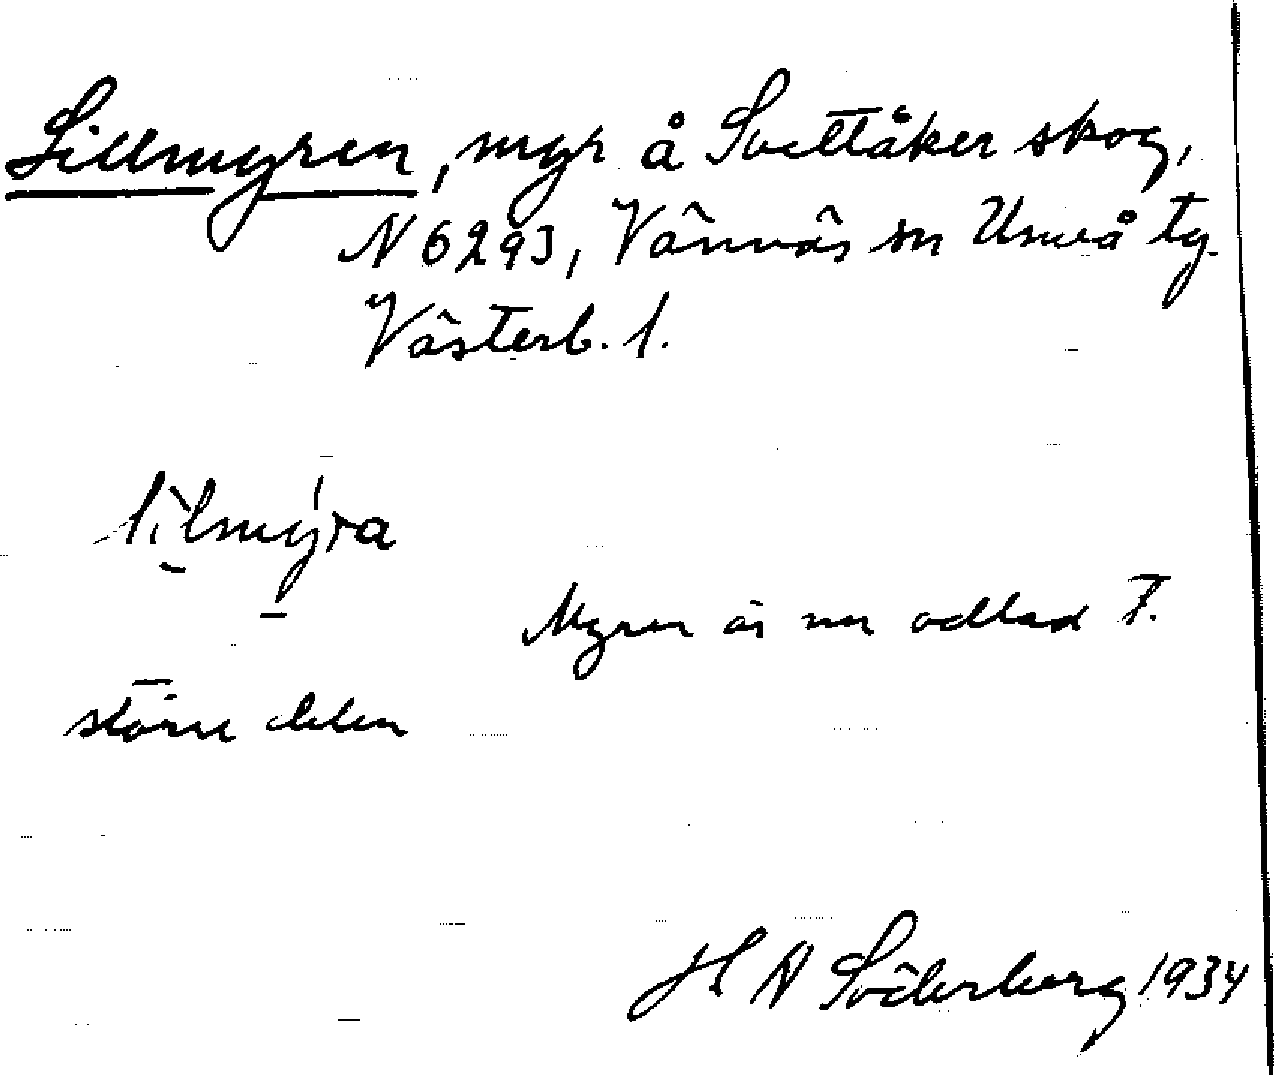 Lillmyren, myr å Spellåker skog,
N 6293, Vännäs sn Umeå tg.
Västerb. l.
lilmyra
Myren är nu odlad t.
större delen
H N Söderberg 1934